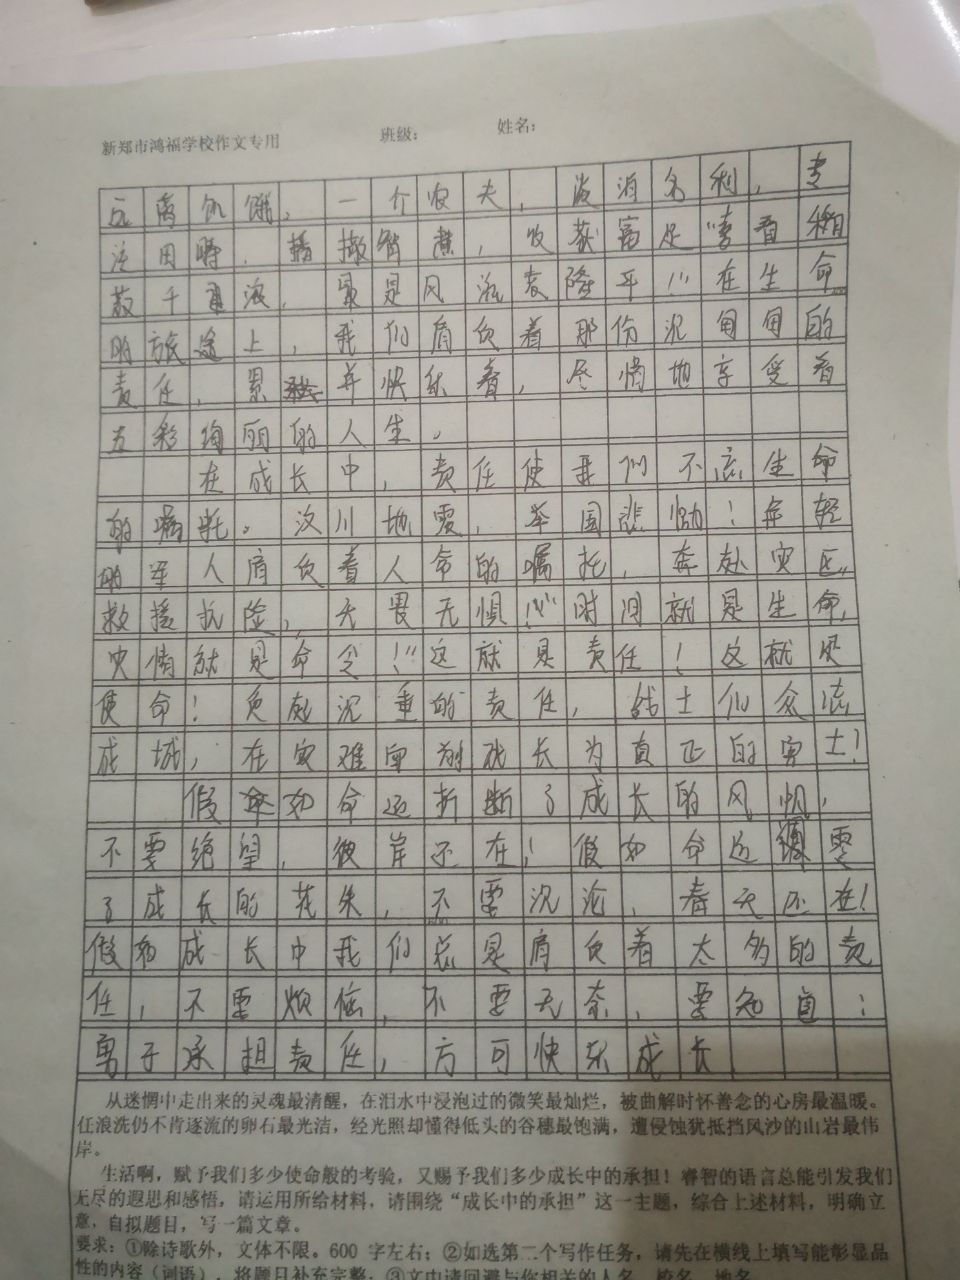 新郑市鸿福学校作文专用 班级: 姓名:
远离饥饿，一个农夫，淡泊名利，专
注田畴，播撒智慧，收获富足“喜看稻
菽千重浪，最是风流袁隆平!”在生命
的旅途上，我们肩负着那份沉甸甸的
责任，累并快乐着，尽情地享受着
五彩绚丽的人生。
在成长中，责任使我们不忘生命
的嘱托。汶川地震，举国悲恸！年轻
的军人肩负着人命的嘱托，奔赴灾区，
救援抗险，无畏无惧！“时间就是生命，
灾情就是命令！”这就是责任！这就是
使命！负起沉重的责任，战士们众志
成城，在灾难面前成长为真正的勇士！
假如命运折断了成长的风帆，
不要绝望，彼岸还在！假如命运凋零
了成长的花朵，不要沉沦，春天还在！
假如成长中我们总是肩负着太多的责
任，不要烦恼，不要无奈，要知道：
勇于承担责任，方可快乐成长
从迷惘中走出来的灵魂最清醒，在泪水中浸泡过的微笑最灿烂，被曲解时怀善念的心房最温暖。
任浪洗仍不肯逐流的卵石最光洁，经光照却懂得低头的谷穗最饱满，遭侵蚀犹抵挡风沙的山岩最伟
岸。
生活啊，赋予我们多少使命般的考验，又赐予我们多少成长中的承担！睿智的语言总能引发我们
无尽的遐思和感悟，请运用所给材料，请围绕“成长中的承担”这一主题，综合上述材料，明确立
意，自拟题目，写一篇文章。
要求：①除诗歌外，文体不限。600 字左右；②如选第二个写作任务，请先在横线上填写能彰显品
性的内容（词语），将题目补充完整；③文中请回避与你相关的人名、校名、地名